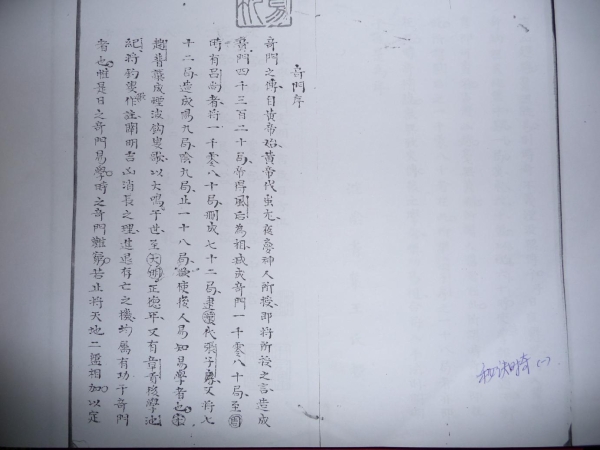 奇門序
奇門之傳自黃帝始黃帝代蚩尤夜夢神人所授即將所授之言造成
奇門四千三百二十局帝得風后為相減成奇門一千零八十局至周
時有呂尚者將一千零八十局刪成七十二局逮漢代張子房又將七
十二局造成陽九局陰九局止一十八局欲使後人易知易學者也宋
趙普纂成煙波釣叟歌以大鳴于世至大明正德年又有章賁後學池
紀將釣叟歌作註闡明吉凶消長之理進退存亡之機均屬有功于奇門
者也惟是日之奇門易學時之奇門難窮若止將天地二盤相加以定